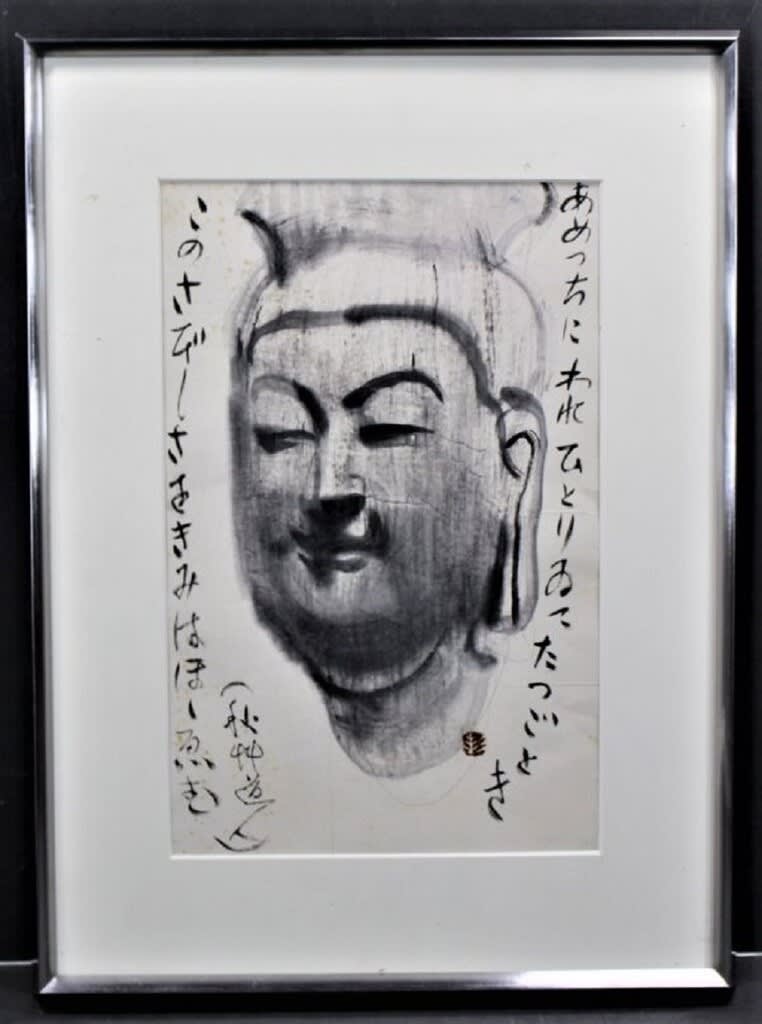 あめつちに われ ひとりゐて たつごと
き
このさびしさをきみはほゝゑむ
(秋艸道人)